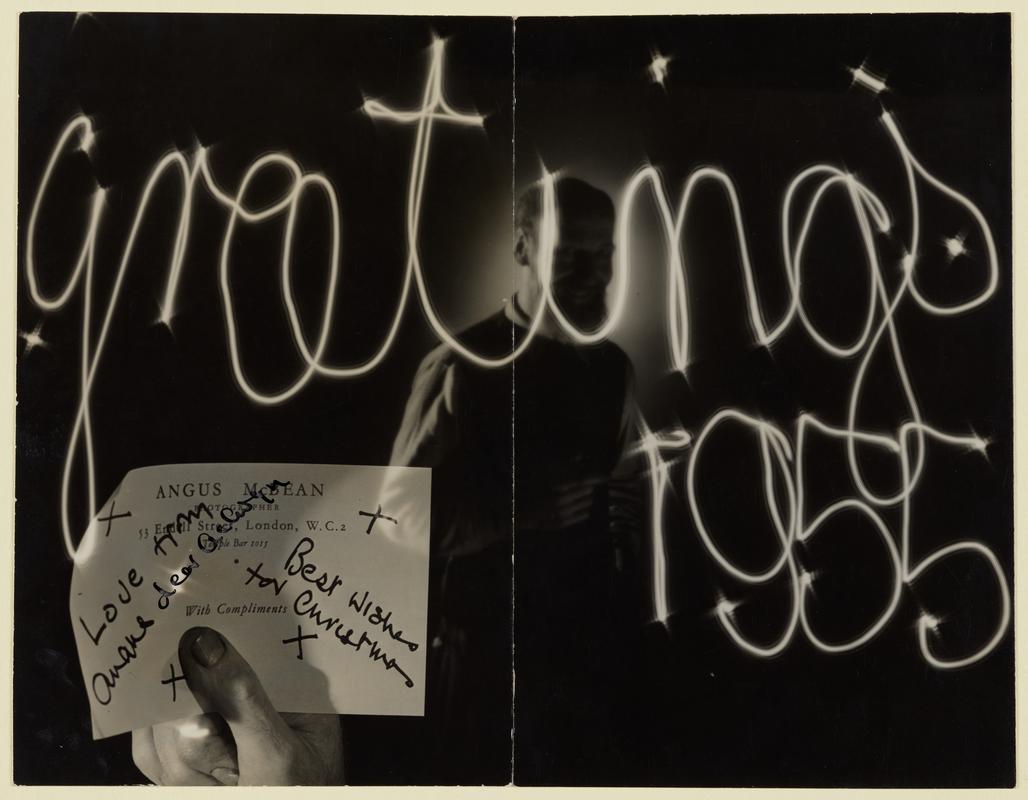 greetings
1955
ANGUS McBEAN
PHOTOGRAPHER
53 Endell Street, London, W.C.2
Temple Bar 1015
With Compliments
Love from
dear
Best Wishes
for Christmas